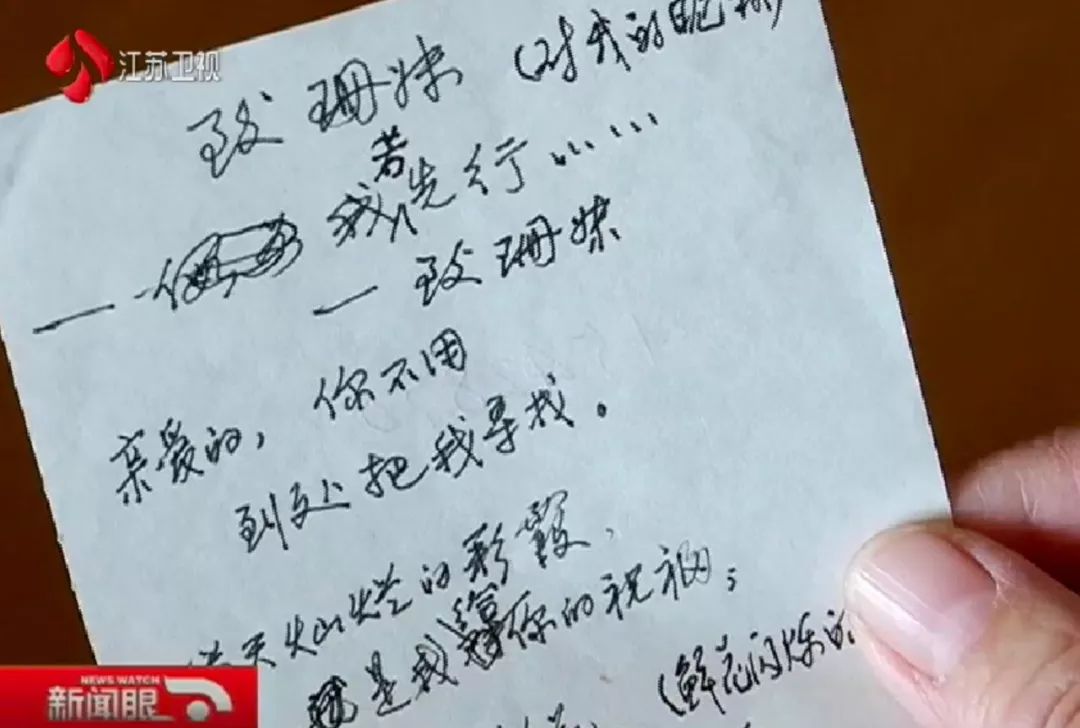 江苏卫视
致珊妹 (对我的昵称)
我若先行……
— 致珊妹
亲爱的，你不用
到处把我寻找。
满天灿烂的彩霞，
就是我给你的祝福；
(鲜花闪烁的
NEWS WATCH
新闻眼